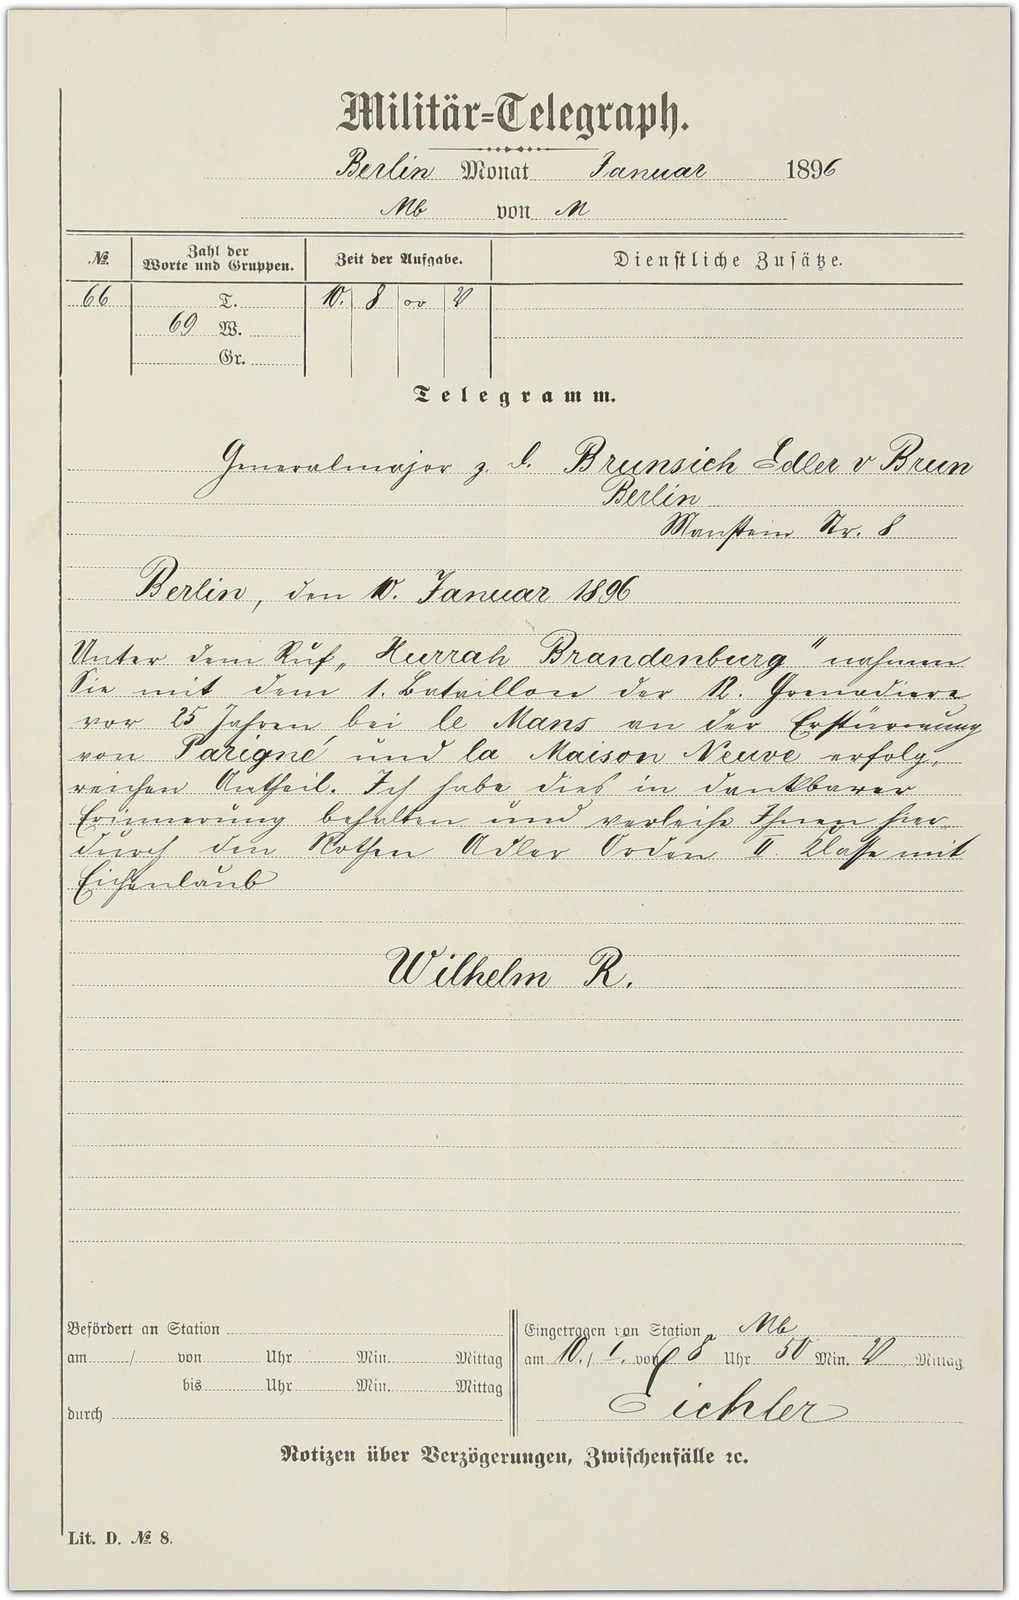 Militär-Telegraph.
Berlin Monat Januar 1896
Mb von M
№. Zahl der Worte und Gruppen. Zeit der Aufgabe. Dienstliche Zusätze.
66 T. 10. 8 V
69 W.
Gr.
Telegramm.
Generalmajor z. D. Brunsich Edler v Brun
Berlin
Manstein Str. 8
Berlin, den 10. Januar 1896
Unter dem Ruf „Hurrah Brandenburg" nahmen
Sie mit dem 1. Bataillon der 12. Grenadiere
vor 25 Jahren bei le Mans an der Erstürmung
von Parigné und la Maison Neuve erfolg-
reichen Antheil. Ich habe dies in dankbarer
Erinnerung behalten und verleihe Ihnen hier-
durch den Rothen Adler Orden II. Klasse mit
Eichenlaub
Wilhelm R.
Befördert an Station
am / von Uhr Min. Mittag
bis Uhr Min. Mittag
durch
Eingetragen von Station Mb
am 10./1. von 8 Uhr 50 Min. V Mittag
Eichler
Notizen über Verzögerungen, Zwischenfälle ꝛc.
Lit. D. № 8.